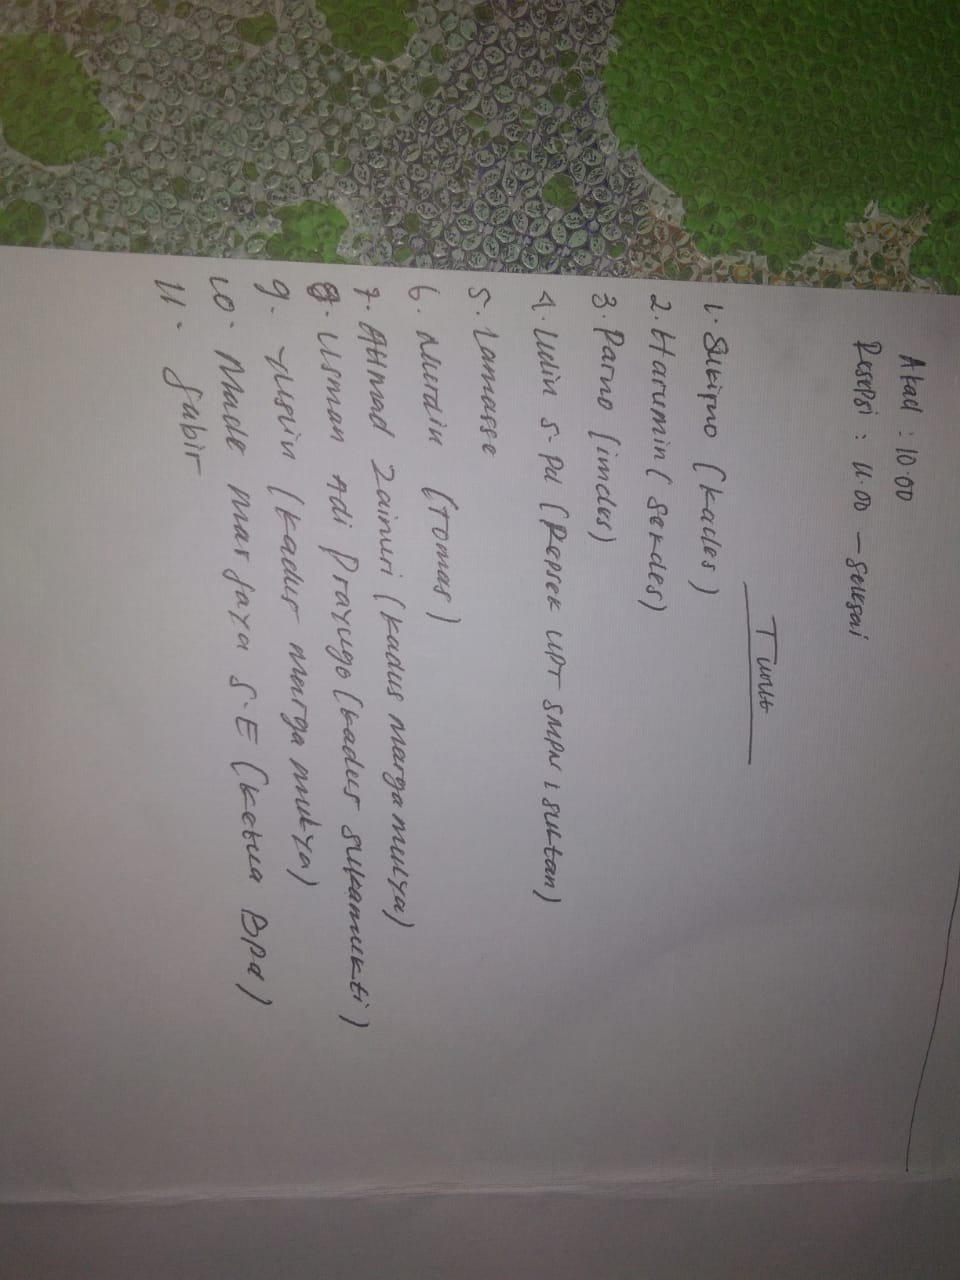 Akad : 10.00
Resepsi : 11.00 - selesai
Turut
1. Sukirno (kades)
2. Harumin (sekdes)
3. Parno (imdes)
4. Udin S.Pd (Kepsek UPT SMPN 1 suktan)
5. Lamasse
6. Nurdin (Tomas)
7. Ahmad Zainuri (kadus marga mulya)
8. Usman Adi Prayugo (kadus sukamukti)
9. yusuin (kadus marga mulya)
10. Made mar jaya S.E (ketua BPd)
11. Sabir